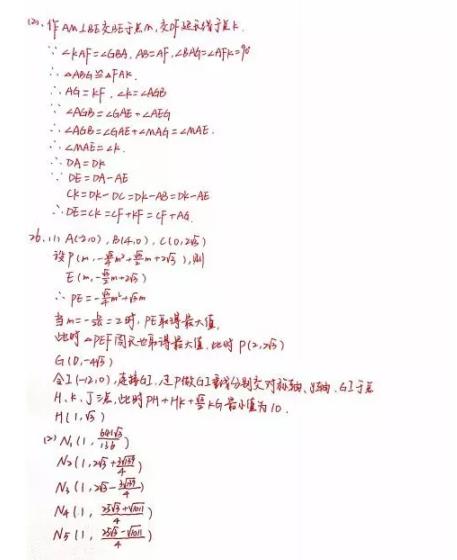 (2). 作AM⊥BE交BE于点M,交DF延长线于点K.
∵ ∠KAF=∠GBA, AB=AF, ∠BAG=∠AFK=90°
∴ △ABG≌△FAK.
∴ AG=KF. ∠K=∠AGB
∵ ∠AGB=∠GAE+∠AEG
∴ ∠AGB=∠GAE+∠MAG=∠MAE.
∴ ∠MAE=∠K.
∴ DA=DK
∵ DE=DA-AE
CK=DK-DC=DK-AB=DK-AE
∴ DE=CK=CF+KF=CF+AG.
26.(1) A(-2,0), B(4,0), C(0,2√3)
设P(m, -√3/4m²+√3/2m+2√3),则
E(m,-√3/2m+2√3)
∴ PE=-√3/4m²+√3m
当m=-b/2a=2时, PE取得最大值.
此时△PEF周长也取得最大值.此时P(2,2√3)
G(0,-4√3)
令I(-12,0),连接GI,过P做GI垂线分别交对称轴、y轴、GI于点
H、K、J三点,此时PH+HK+√3/2KG最小值为10.
H(1,√3)
(2) N₁(1, )
N₂(1,2√3+ /4)
N₃(1,2√3- /4)
N₄(1, 25√3+√1011/4)
N₅(1, 25√3-√1011/4)